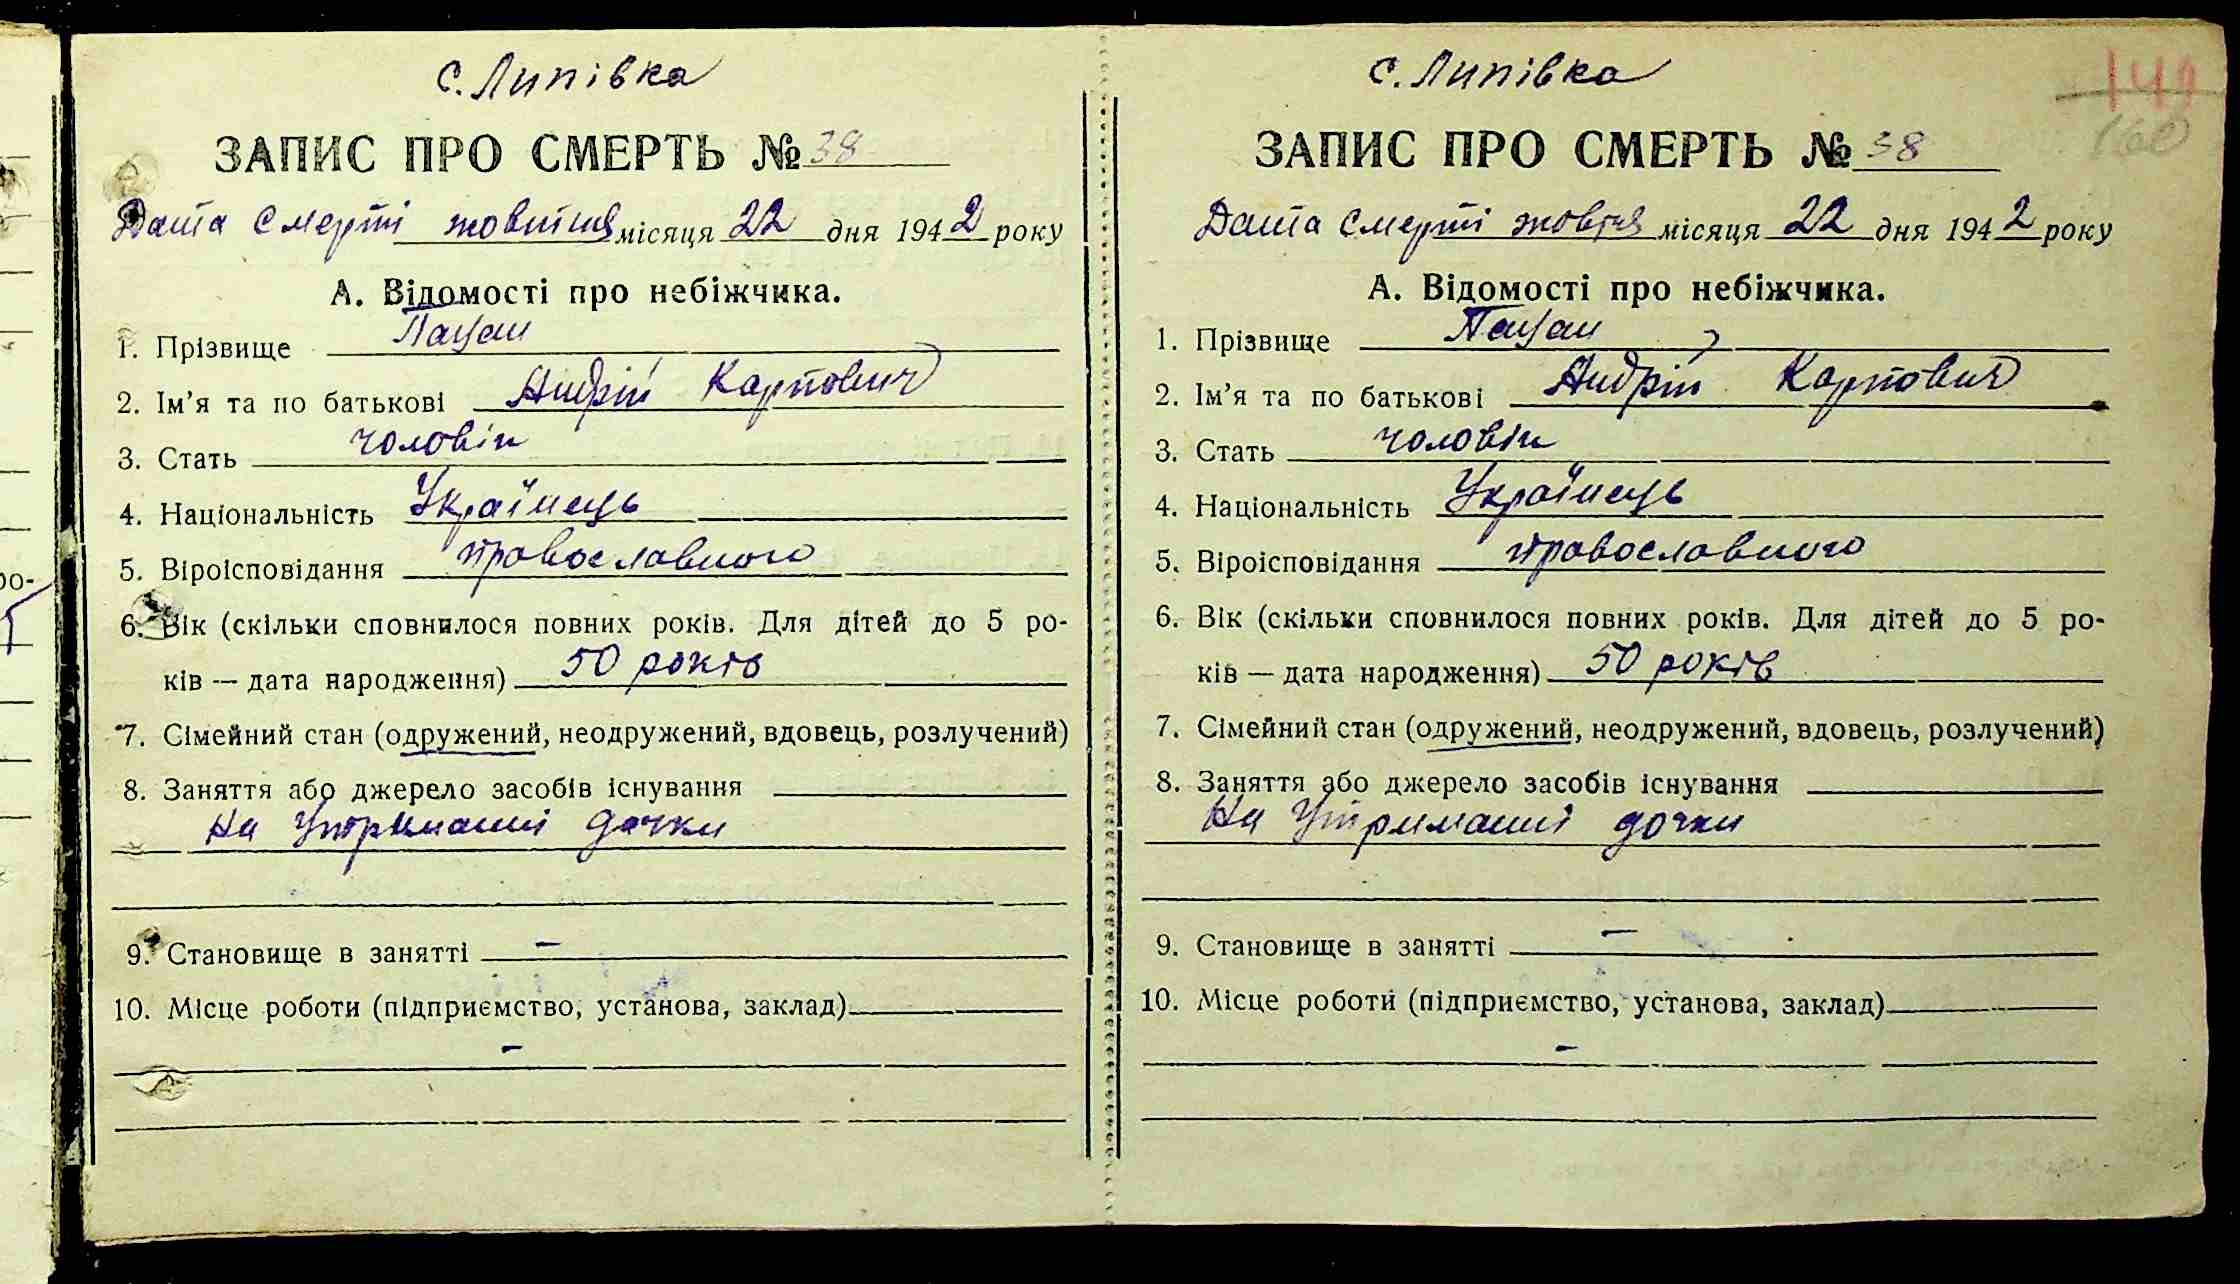 с. Липівка
ЗАПИС ПРО СМЕРТЬ № 38
Дата смерті жовтня місяця 22 дня 1942 року
А. Відомості про небіжчика.
1. Прізвище Пацан
2. Ім'я та по батькові Андрій Карпович
3. Стать чоловік
4. Національність Українець
5. Віроісповідання православного
6. Вік (скільки сповнилося повних років. Для дітей до 5 ро-
ків — дата народження) 50 років
7. Сімейний стан (одружений, неодружений, вдовець, розлучений)
8. Заняття або джерело засобів існування
На утриманні дочки
9. Становище в занятті –
10. Місце роботи (підприємство, установа, заклад)
–
с. Липівка
ЗАПИС ПРО СМЕРТЬ № 38
Дата смерті жовтня місяця 22 дня 1942 року
А. Відомості про небіжчика.
1. Прізвище Пацан
2. Ім'я та по батькові Андрій Карпович
3. Стать чоловік
4. Національність Українець
5. Віроісповідання православного
6. Вік (скільки сповнилося повних років. Для дітей до 5 ро-
ків — дата народження) 50 років
7. Сімейний стан (одружений, неодружений, вдовець, розлучений)
8. Заняття або джерело засобів існування
На утриманні дочки
9. Становище в занятті –
10. Місце роботи (підприємство, установа, заклад)
–